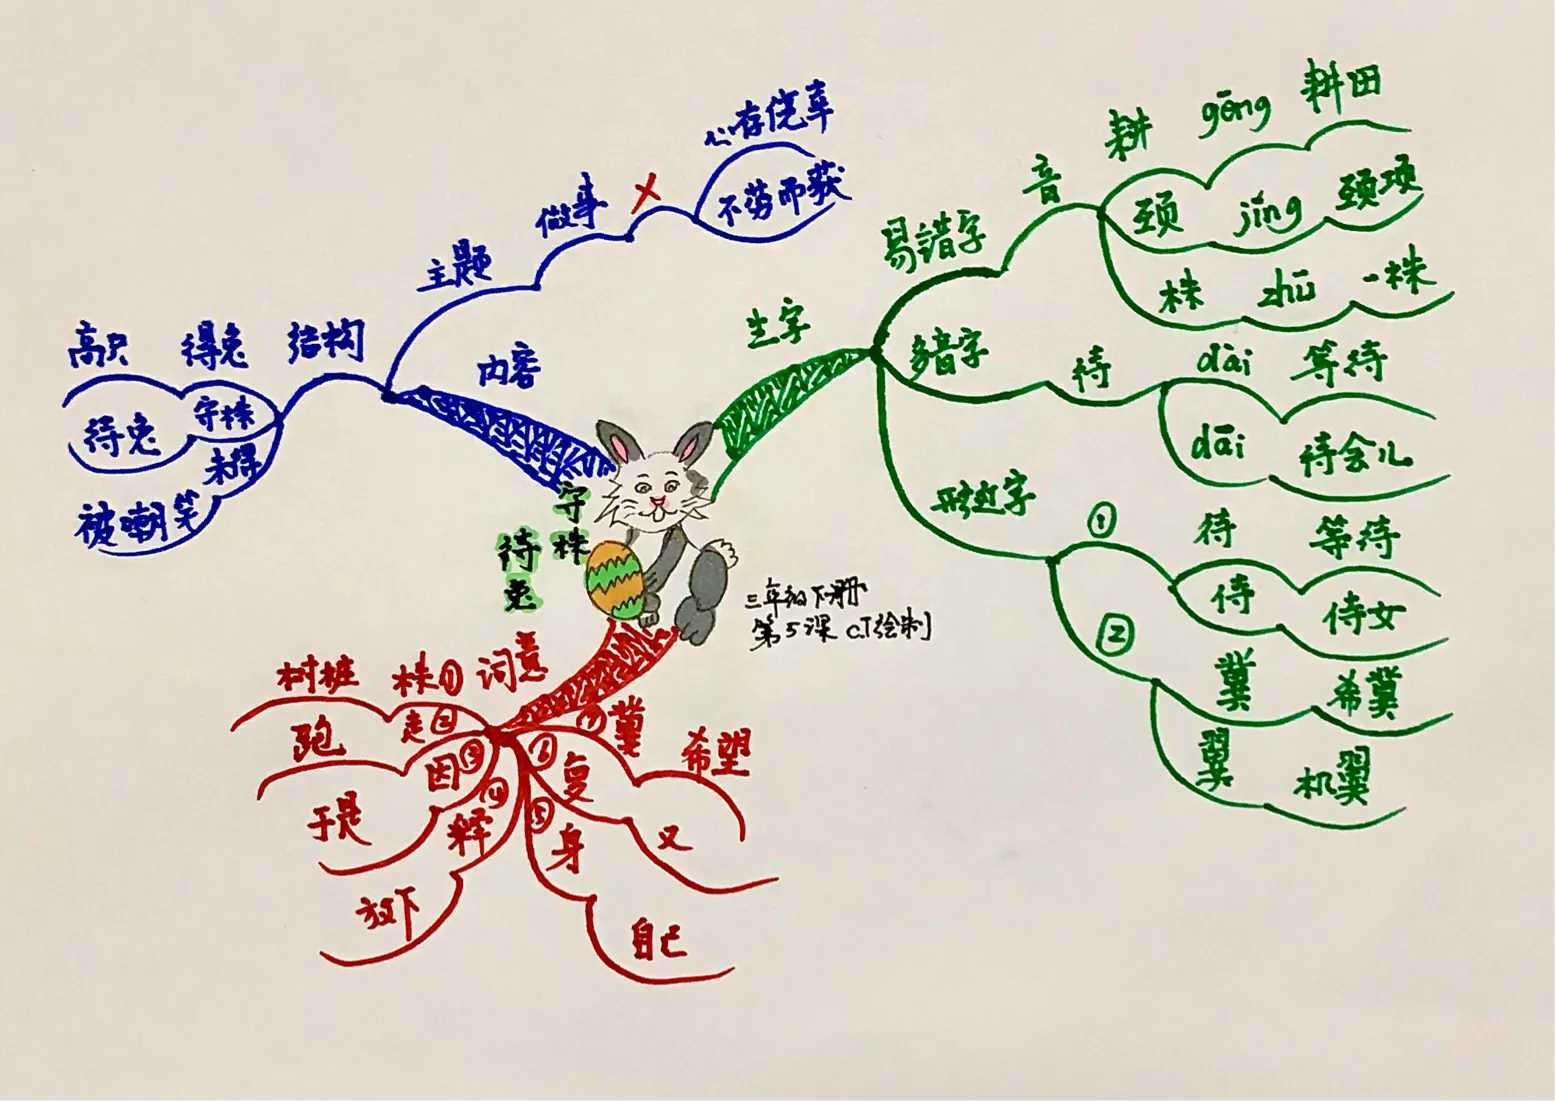 守株
待兔
三年级下册
第5课 CT绘制
生字
易错字
音
耕 gēng 耕田
颈 jǐng 颈项
株 zhū 一株
多音字
待
dài 等待
dāi 待会儿
形近字
①
待 等待
侍 侍女
②
冀 希冀
翼 机翼
词意
株① 树桩
走② 跑
因③ 于是
释④ 放下
身⑤ 自己
复⑥ 又
冀⑦ 希望
内容
结构
得兔 高兴
守株 待兔
未得 被嘲笑
主题
做事 ×
心存侥幸
不劳而获